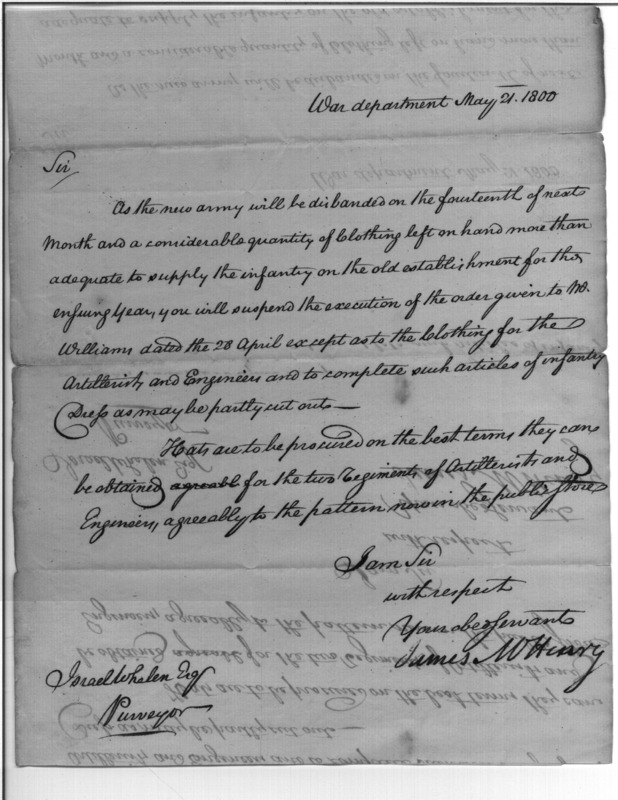 War department May 21. 1800
Sir
As the new army will be disbanded on the fourteenth of next
Month and a considerable quantity of Clothing left on hand more than
adequate to supply the infantry on the old establishment for the
ensuing Year, you will suspend the execution of the order given to Mr.
Williams dated the 28 April except as to the Clothing for the
Artillerists and Engineers and to complete such articles of infantry
Dress as may be partly cut out —
Hats are to be procured on the best terms they can
be obtained agreeabl for the two Regiments of Artillerists and
Engineers, agreeably to the pattern now in the public Store
I am Sir
with respect
Your obed Servant
James McHenry
Israel Whelen Esqr
Purveyor